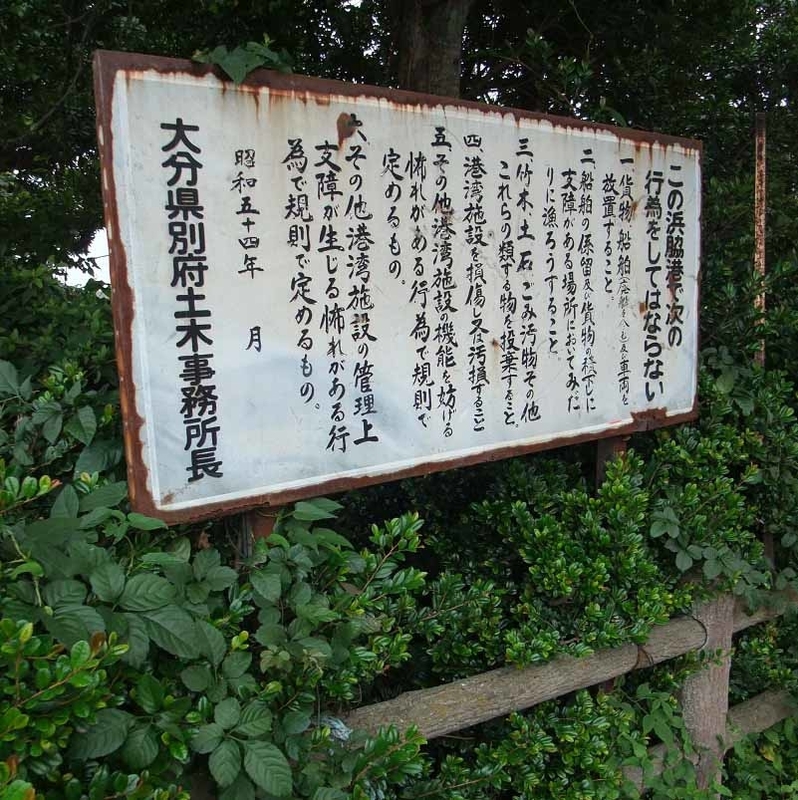 この浜脇港で次の
行為をしてはならない
一、貨物、船舶 車両を
放置すること。
二、船舶の係留及び貨物の積下しに
支障がある場所においてみだ
りに漁ろうすること。
三、竹木、土石、ごみ汚物その他
これらの類する物を投棄すること。
四、港湾施設を損傷し又は汚損すること
五、その他港湾施設の機能を妨げる
怖れがある行為で規則で
定めるもの。
六、その他港湾施設の管理上
支障が生じる怖れがある行
為で規則で定めるもの。
昭和五十四年 月
大分県別府土木事務所長